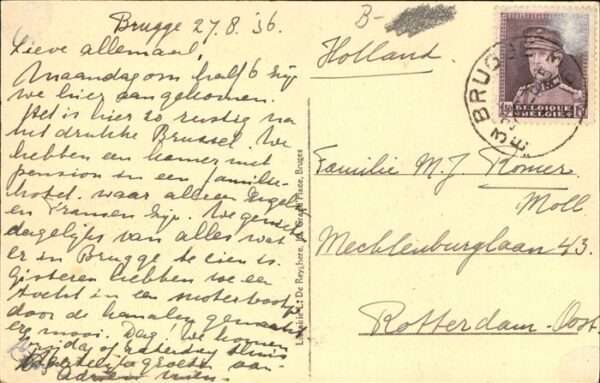 Brugge 27.8.'36.
Lieve allemaal,
Maandag om half 6 zijn
we hier aangekomen.
Het is hier zo rustig na
het drukke Brussel. We
hebben een kamer met
pension in een familie-
hotel. waar alleen Engelsen
en Fransen zijn. We genieten
dagelijks van alles wat
er in Brugge te zien is.
Gisteren hebben we een
tocht in een motorbootje
door de kanalen gemaakt
erg mooi. Dag! We komen
vrijdag of zaterdag thuis
Hartelijk groeten van
B-
Holland.
Familie M. J. Romer
Moll
Mecklenburglaan 43.
Rotterdam-Oost.
Librairie L. De Reyghere, Grand'Place, Bruges
BRUGGE
BELGIQUE
BELGIE